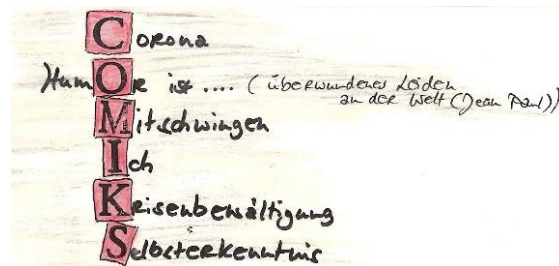 Corona
HumOR ist .... (überwundenes Leiden
an der Welt (Jean Paul))
Mitschwingen
Ich
Krisenbewältigung
Selbsterkenntnis